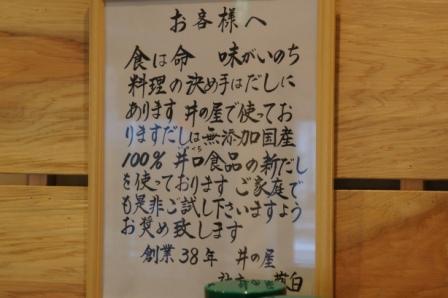 お客様へ
食は命 味がいのち
料理の決め手はだしに
あります 丼の屋で使ってお
りますだしは無添加国産
100%井口食品の新だし
を使っております ご家庭で
も是非ご試し下さいますよう
お奨め致します
創業38年 丼の屋
敬白